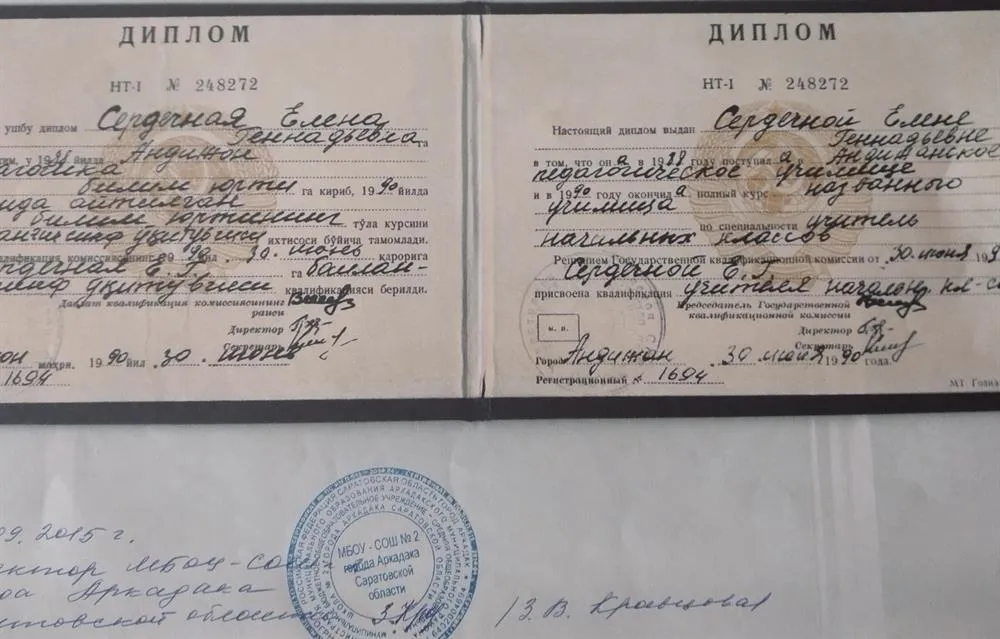 ДИПЛОМ
НТ-I № 248272
ушбу диплом Сердечная Елена
Геннадьевна га
Андижон
билим юрти га кириб, 1990 йилда
айтилган
билим юртининг тўла курсини
ихтисоси бўйича тамомлади.
30. июнь қарорига
Е. Г. га
квалификацияси берилди.
Давлат квалификация комиссиясининг
раиси
Директор
Секретарь
1990 йил 30. июнь
1694
ДИПЛОМ
НТ-I № 248272
Настоящий диплом выдан Сердечной Елене
Геннадьевне
в том, что она в 1988 году поступила в Андижанское
педагогическое училище
и в 1990 году окончила полный курс названного
училища по специальности учитель
начальных классов
Решением Государственной квалификационной комиссии от 30 июня
Сердечной Е. Г.
присвоена квалификация учителя начальн. кл-
Председатель Государственной
квалификационной комиссии
Директор
Секретарь
М. П.
Город Андижан 30 июня 1990 года.
Регистрационный № 1694
МТ Гозна
09. 2015 г.
МБОУ-СО
Аркадака
области
МБОУ - СОШ № 2
города Аркадака
Саратовской
области
/З. В. Кравцова/